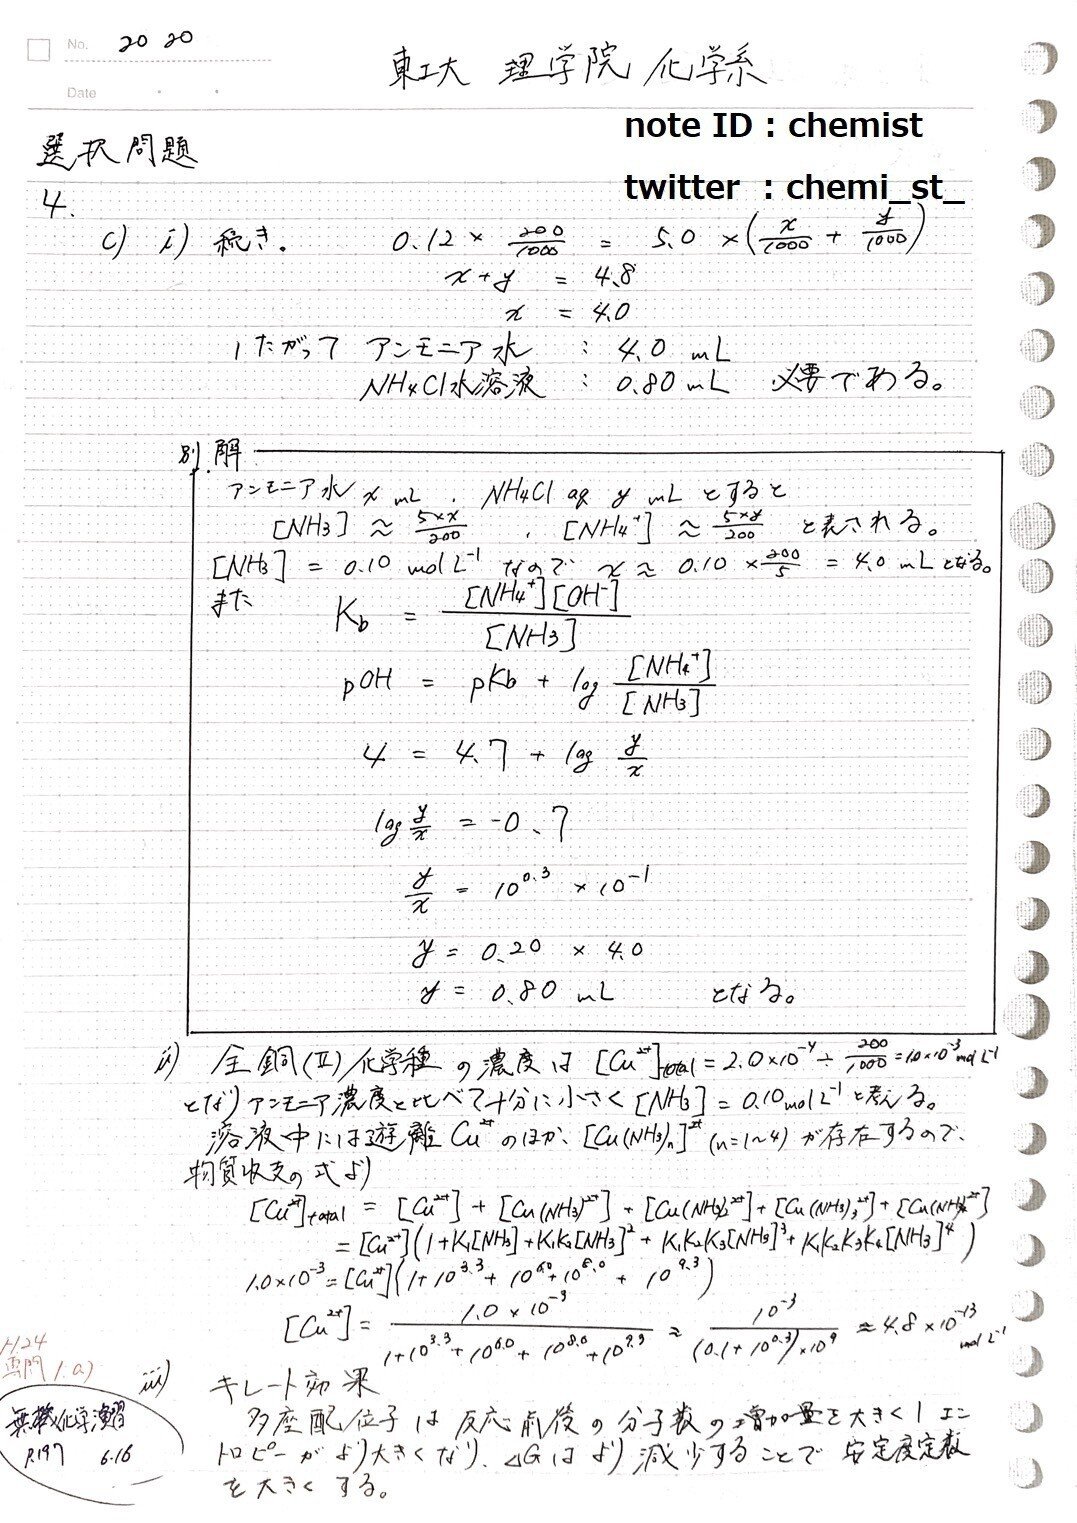 No. 2020
Date
東工大 理学院 化学系
note ID : chemist
twitter : chemi_st_
選択問題
4.
c) i) 続き。 0.12 × 200/1000 = 5.0 × (x/1000 + y/1000)
x+y = 4.8
x = 4.0
したがって アンモニア水 : 4.0 mL
NH4Cl水溶液 : 0.80 mL 必要である。
別解
アンモニア水 x mL 、 NH4Cl aq y mL とすると
[NH3] ≈ 5×x/200 、 [NH4⁺] ≈ 5×y/200 と表される。
[NH3] = 0.10 mol L⁻¹ なので x ≈ 0.10 × 200/5 = 4.0 mL となる。
また
Kb = [NH4⁺][OH⁻]/[NH3]
pOH = pKb + log [NH4⁺]/[NH3]
4 = 4.7 + log y/x
log y/x = -0.7
y/x = 10^0.3 × 10⁻¹
y = 0.20 × 4.0
y = 0.80 mL となる。
ii) 全銅(II)化学種の濃度は [Cu²⁺]total = 2.0×10⁻⁴ ÷ 200/1000 = 1.0×10⁻³ mol L⁻¹
となりアンモニア濃度と比べて十分に小さく [NH3] = 0.10 mol L⁻¹ と考える。
溶液中には遊離 Cu²⁺ のほか、[Cu(NH3)n]²⁺ (n=1~4) が存在するので、
物質収支の式より
[Cu²⁺]total = [Cu²⁺] + [Cu(NH3)²⁺] + [Cu(NH3)2²⁺] + [Cu(NH3)3²⁺] + [Cu(NH3)4²⁺]
= [Cu²⁺](1+K1[NH3]+K1K2[NH3]²+K1K2K3[NH3]³+K1K2K3K4[NH3]⁴)
1.0×10⁻³ = [Cu²⁺](1+10^3.3+10^6.0+10^8.0+10^9.3)
[Cu²⁺] = 1.0×10⁻³/(1+10^3.3+10^6.0+10^8.0+10^9.3) ≈ 10⁻³/((0.1+10^0.3)×10⁹) ≈ 4.8×10⁻¹³ mol L⁻¹
H.24
専門 1.a)
iii) キレート効果
無機化学演習
P.197 6.16
多座配位子は反応前後の分子数の増加量を大きくしエン
トロピーがより大きくなり、ΔGはより減少することで安定度定数
を大きくする。